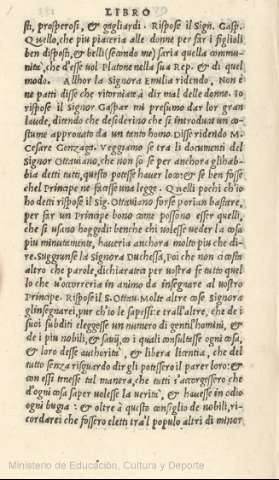 LIBRO
sti, prosperosi, & gagliardi. Rispose il Sign. Gasp.
Quello, che piu piaceria alle donne per far i figlioli
ben disposti, & belli (secondo me) saria quella commu-
nità, che d'esse vol Platone nella sua Rep. & di quel
modo. Allhor la Signora Emilia ridendo, Non è
ne patti disse che ritorniate à dir mal delle donne. Io
rispose il Signor Gaspar mi presumo dar lor gran
laude, dicendo che desiderino che s'introduca un co-
stume approvato da un tanto homo. Disse ridendo M.
Cesare Gonzaga. Veggiamo se tra li documenti del
Signor Ottaviano, che non so se per anchora gli hab-
bia detti tutti, questo potesse haver loco: & se ben fosse
che'l Principe ne facesse una legge. Quelli pochi ch'io
ho detti rispose il Sig. Ottaviano forse porian bastare,
per far un Principe bono come possono esser quelli,
che si usano hoggidì: benche chi volesse veder la cosa
piu minutamente, haveria anchora molto piu che di-
re. Suggiunse la Signora Duchessa, Poi che non ci costa
altro che parole, dichiarateci per vostra fe tutto quel-
lo che u'occorreria in animo da insegnare al vostro
Principe. Rispose il S. Ottav. Molte altre cose Signora
gl'insegnarei, pur ch'io le sapessi: e tra l'altre, che de i
suoi subditi eleggesse un numero di gentil'homini, &
de i piu nobili, & savij, co i quali consultasse ogni cosa,
& loro desse authorità, & libera licentia, che del
tutto senza risguardo dir gli potessero il parer loro: &
con essi tenesse tal manera, che tutti s'accorgessero che
d'ogni cosa saper volesse la verità, & havesse in odio
ogni bugia: & oltre à questo consiglio de nobili, ri-
cordarei che fossero eletti tra'l populo altri di minor
Ministerio de Educación, Cultura y Deporte